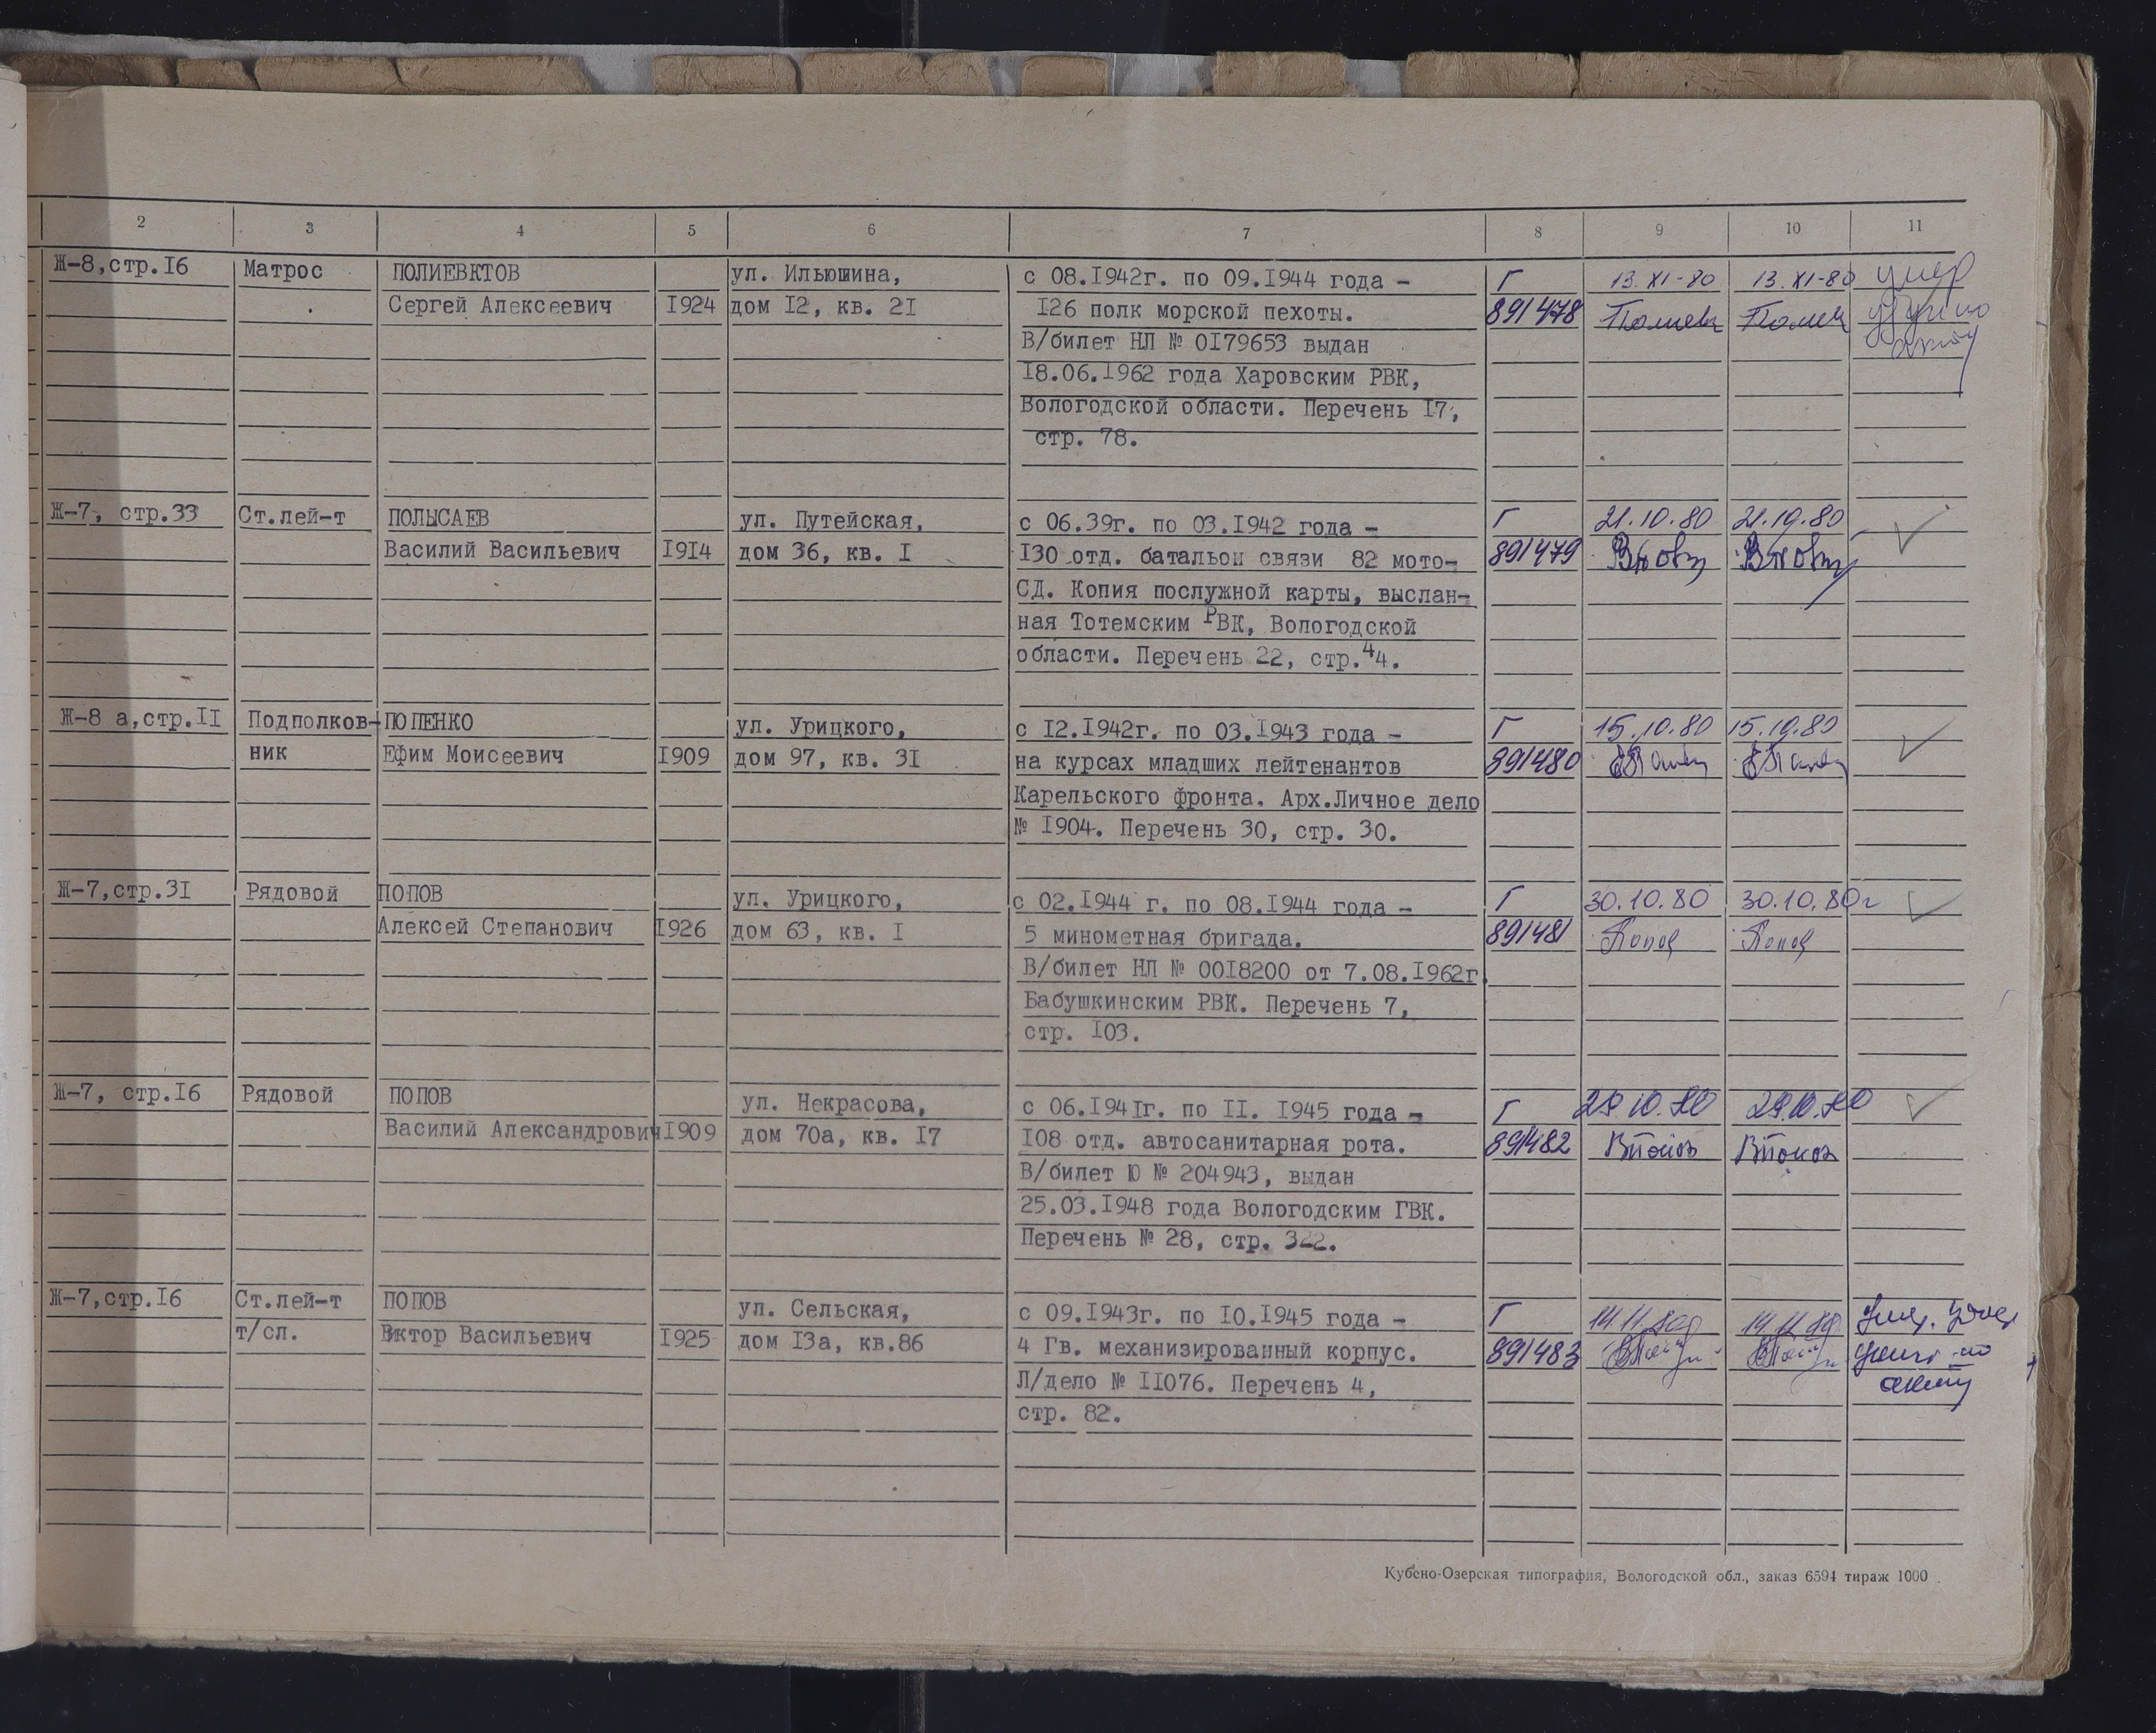 2 3 4 5 6 7 8 9 10 11
Ж-8,стр.I6 Матрос ПОЛИЕВКТОВ ул. Ильюшина, с 08.I942г. по 09.I944 года - Г 13.XI-80 13.XI-80 умер
Сергей Алексеевич I924 дом I2, кв. 2I I26 полк морской пехоты. 891478
В/билет НЛ № 0I79653 выдан
I8.06.I962 года Харовским РВК,
Вологодской области. Перечень I7,
стр. 78.
Ж-7, стр.33 Ст.лей-т ПОЛЫСАЕВ ул. Путейская, с 06.39г. по 03.I942 года - Г 21.10.80 21.10.80
Василий Васильевич I9I4 дом 36, кв. I I30 отд. батальон связи 82 мото- 891479
СД. Копия послужной карты, выслан-
ная Тотемским РВК, Вологодской
области. Перечень 22, стр.44.
Ж-8 а,стр.II Подполков- ПОПЕНКО ул. Урицкого, с I2.I942г. по 03.I943 года - Г 15.10.80 15.10.80
ник Ефим Моисеевич I909 дом 97, кв. 3I на курсах младших лейтенантов 891480
Карельского фронта. Арх.Личное дело
№ I904. Перечень 30, стр. 30.
Ж-7,стр.3I Рядовой ПОПОВ ул. Урицкого, с 02.I944 г. по 08.I944 года - Г 30.10.80 30.10.80г
Алексей Степанович I926 дом 63, кв. I 5 минометная бригада. 891481 Попов Попов
В/билет НЛ № 00I8200 от 7.08.I962г.
Бабушкинским РВК. Перечень 7,
стр. I03.
Ж-7, стр.I6 Рядовой ПОПОВ ул. Некрасова, с 06.I94Iг. по II. I945 года - Г 29.10.80 29.10.80
Василий Александрович I909 дом 70а, кв. I7 I08 отд. автосанитарная рота. 891482 ВПопов ВПопов
В/билет Ю № 204943, выдан
25.03.I948 года Вологодским ГВК.
Перечень № 28, стр. 322.
Ж-7,стр.I6 Ст.лей-т ПОПОВ ул. Сельская, с 09.I943г. по I0.I945 года - Г 14.11.80 14.11.80 Умер. Удост
т/сл. Виктор Васильевич I925 дом I3а, кв.86 4 Гв. механизированный корпус. 891483 по
Л/дело № II076. Перечень 4, акту
стр. 82.
Кубено-Озерская типография, Вологодской обл., заказ 6594 тираж 1000